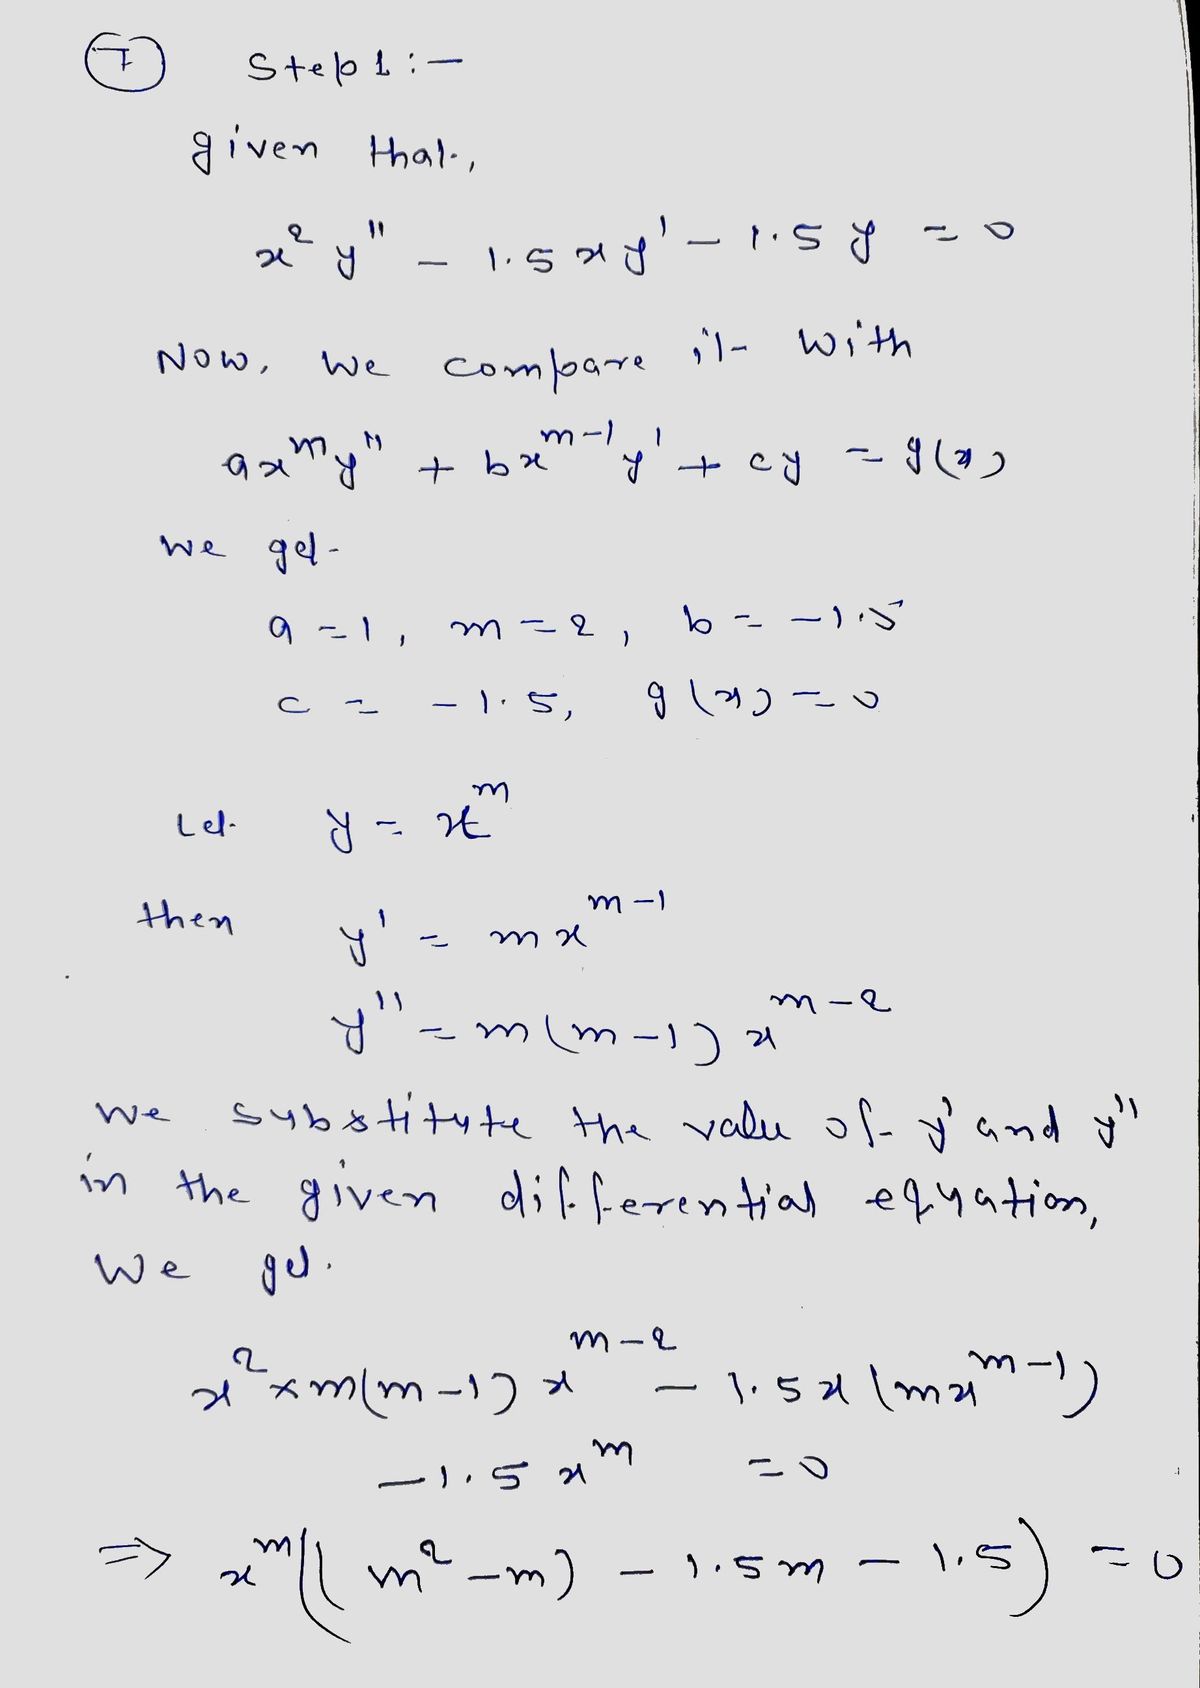 7 Step 1 :-
given that,
x² y'' - 1.5 x y' - 1.5 y = 0
Now, we compare it with
ax^m y'' + bx^(m-1) y' + cy = g(x)
we get
a = 1, m = 2, b = -1.5
c = -1.5, g(x) = 0
Let y = x^m
then y' = m x^(m-1)
y'' = m(m-1) x^(m-2)
we substitute the value of y' and y''
in the given differential equation,
we get.
x² × m(m-1) x^(m-2) - 1.5x (mx^(m-1))
-1.5 x^m = 0
⇒ x^m((m² - m) - 1.5m - 1.5) = 0